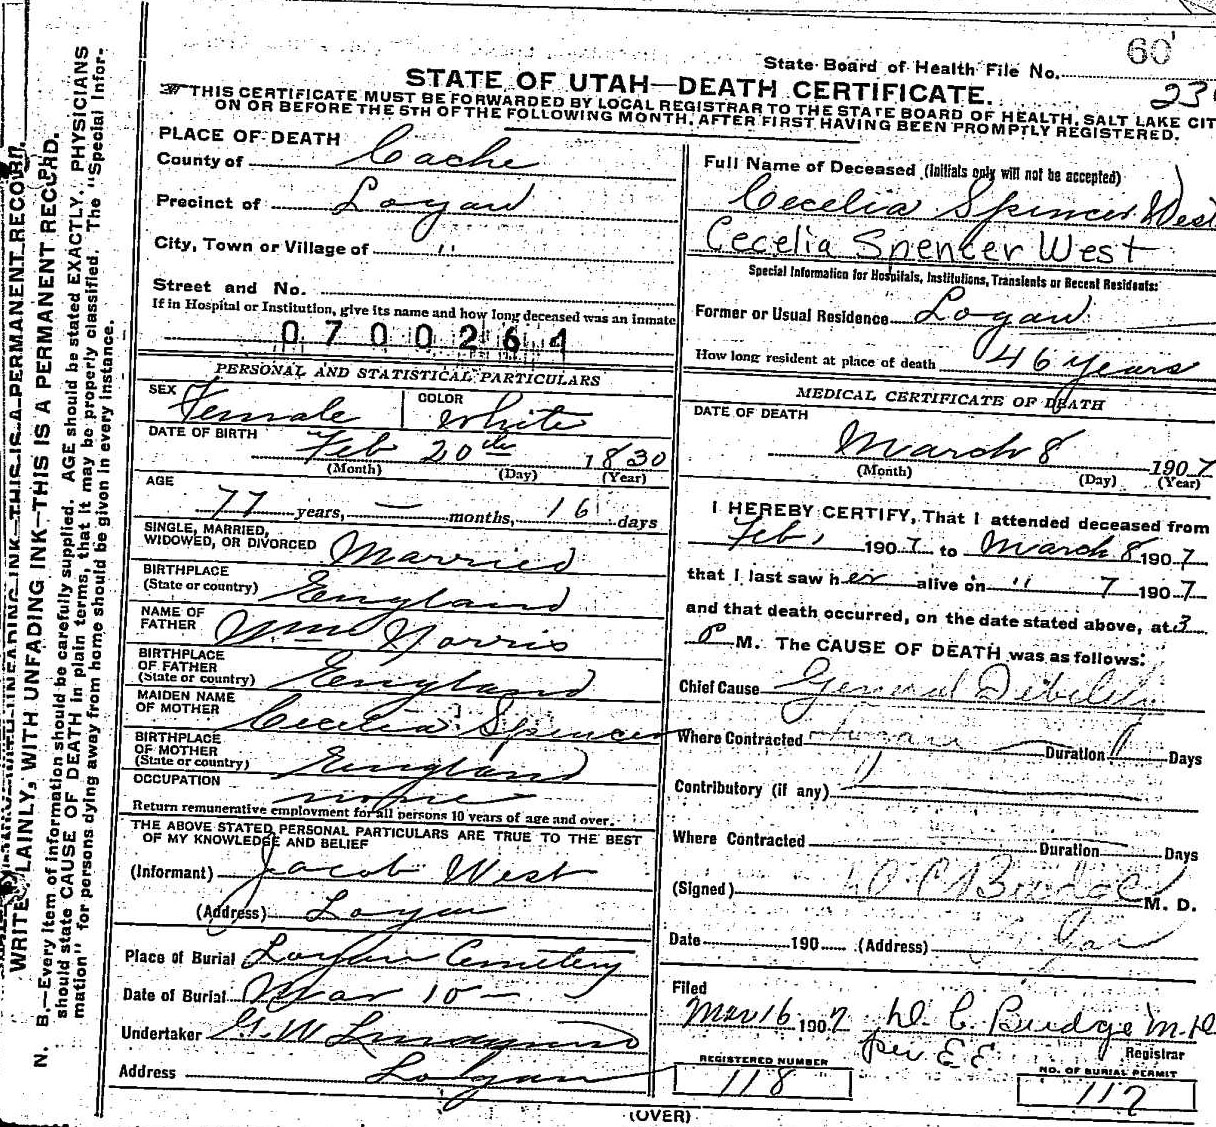 60
State Board of Health File No.
STATE OF UTAH—DEATH CERTIFICATE. 23
THIS CERTIFICATE MUST BE FORWARDED BY LOCAL REGISTRAR TO THE STATE BOARD OF HEALTH, SALT LAKE CIT
ON OR BEFORE THE 5TH OF THE FOLLOWING MONTH, AFTER FIRST HAVING BEEN PROMPTLY REGISTERED.
PLACE OF DEATH
County of Cache
Precinct of Logan
City, Town or Village of "
Street and No.
If in Hospital or Institution, give its name and how long deceased was an inmate
0700264
PERSONAL AND STATISTICAL PARTICULARS
SEX Female COLOR White
DATE OF BIRTH Feb 20th 1830
(Month) (Day) (Year)
AGE
77 years, — months, 16 days
SINGLE, MARRIED,
WIDOWED, OR DIVORCED Married
BIRTHPLACE
(State or country) England
NAME OF
FATHER Wm Norris
BIRTHPLACE
OF FATHER
(State or country) England
MAIDEN NAME
OF MOTHER Cecelia Spencer
BIRTHPLACE
OF MOTHER
(State or country) England
OCCUPATION none
Return remunerative employment for all persons 10 years of age and over.
THE ABOVE STATED PERSONAL PARTICULARS ARE TRUE TO THE BEST
OF MY KNOWLEDGE AND BELIEF
(Informant) Jacob West
(Address) Logan
Place of Burial Logan Cemetery
Date of Burial Mar 10 —
Undertaker G. W. Lindquist
Address Logan
Full Name of Deceased (Initials only will not be accepted)
Cecelia Spencer West
Cecelia Spencer West
Special Information for Hospitals, Institutions, Transients or Recent Residents:
Former or Usual Residence Logan
How long resident at place of death 46 years
MEDICAL CERTIFICATE OF DEATH
DATE OF DEATH
March 8 1907
(Month) (Day) (Year)
I HEREBY CERTIFY, That I attended deceased from
Feb, 1907 to March 8 1907
that I last saw her alive on " 7 1907
and that death occurred, on the date stated above, at 3
P M. The CAUSE OF DEATH was as follows:
Chief Cause General Debility
Where Contracted Duration Days
Contributory (if any)
Where Contracted Duration Days
(Signed) D C Budge M. D.
Date 190 (Address) Logan
Filed
Mar 16 1907 D. C. Budge M.D
per E E Registrar
REGISTERED NUMBER
118
NO. OF BURIAL PERMIT
117
(OVER)
WRITE PLAINLY, WITH UNFADING INK—THIS IS A PERMANENT RECORD.
N. B.—Every item of information should be carefully supplied. AGE should be stated EXACTLY. PHYSICIANS
should state CAUSE OF DEATH in plain terms, that it may be properly classified. The "Special Infor-
mation" for persons dying away from home should be given in every instance.